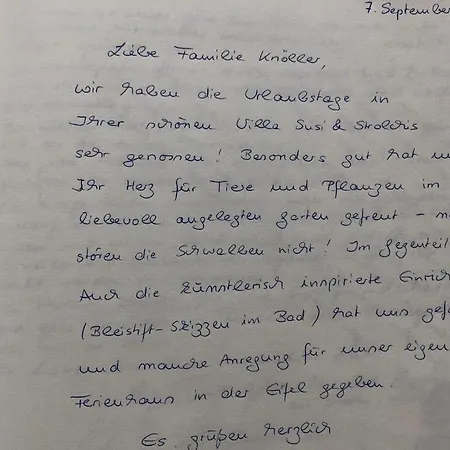 7. September
Liebe Familie Knöller,
wir haben die Urlaubstage in
Ihrer schönen Villa Susi & Strolchis
sehr genossen! Besonders gut hat un
Ihr Herz für Tiere und Pflanzen im
liebevoll angelegten Garten gefreut -
stören die Schwalben nicht! Im Gegenteil
Auch die künstlerisch inspirierte Einrich
(Bleistift-Skizzen im Bad) hat uns gefa
und manche Anregung für unser eigen
Ferienhaus in der Eifel gegeben.
Es grüßen herzlich